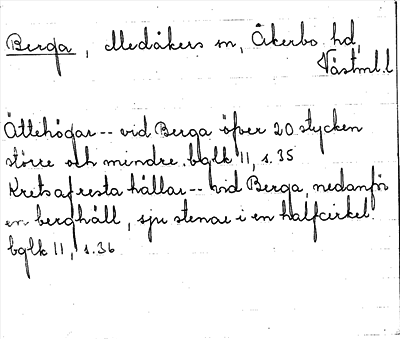 Berga, Medåkers sn, Åkerbo hd,
Västml.l
Ättehögar -- vid Berga öfver 20 stycken
större och mindre. bglk 11, s. 35
Krets af resta hällar -- vid Berga, nedanför
en berghäll, sju stenar i en halfcirkel.
bglk 11, s. 36